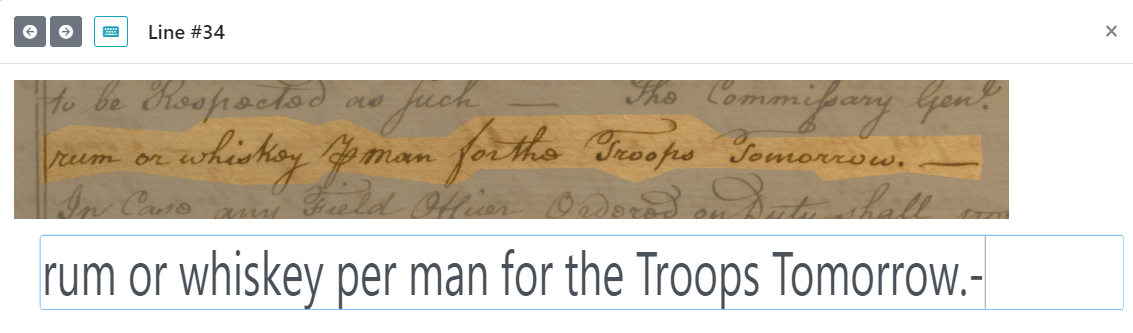 Line #34
to be Respected as such — The Commissary Genl.
rum or whiskey ⅌ man for the Troops Tomorrow. —
In Case any Field Officer Ordered on Duty shall
rum or whiskey per man for the Troops Tomorrow.-